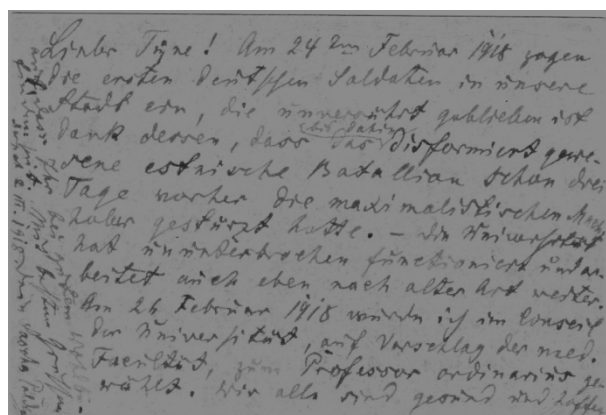 Lieber Tüne! Am 24 Februar 1918 zogen
die ersten deutschen Soldaten in unsere
Stadt ein, die unversehrt geblieben ist
dank dessen, dass das bis dahin disformiert gewe-
sene estnische Batallion schon drei
Tage vorher die maximalistischen Macht-
haber gestürzt hatte. – Die Universität
hat ununterbrochen functioniert und ar-
beitet auch eben nach alter Art weiter.
Am 26 Februar 1918 wurde ich im Conseil
der Universität, auf Vorschlag der med.
Facultät, zum Professor ordinarius ge-
wählt. Wir alle sind gesund und hoffen
auch dass Ihr bei gutem Wohlbe-
finden seid. Mit besten Grüssen
2. III. 1918 Dein Sascha